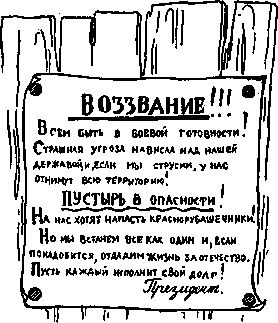 ВОЗЗВАНИЕ!!!
Всем быть в боевой готовности!
Страшная угроза нависла над нашей
державой, и если мы струсим, у нас
отнимут всю территорию!
Пустырь в опасности!
На нас хотят напасть краснорубашечники!
Но мы встанем все как один и, если
понадобится, отдадим жизнь за отечество.
Пусть каждый исполнит свой долг!
Президент.